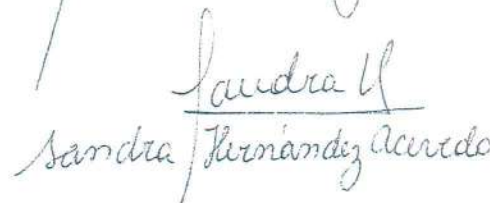 Sandra H
Sandra Hernández Acevedo